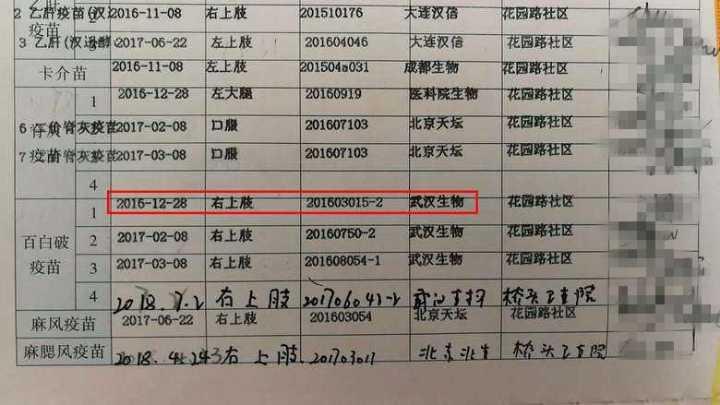 疫苗
2 乙肝疫苗(汉 2016-11-08 右上肢 201510176 大连汉信 花园路社区
3 乙肝(汉逊酵 2017-06-22 左上肢 201604046 大连汉信 花园路社区
卡介苗 2016-11-08 左上肢 201504a031 成都生物 花园路社区
1 2016-12-28 左大腿 20160919 医科院生物 花园路社区
6 价脊灰疫苗 2017-02-08 口服 201607103 北京天坛 花园路社区
7 疫苗 脊灰疫苗 2017-03-08 口服 201607103 北京天坛 花园路社区
4
百白破疫苗
1 2016-12-28 右上肢 201603015-2 武汉生物 花园路社区
2 2017-02-08 右上肢 20160750-2 武汉生物 花园路社区
3 2017-03-08 右上肢 201608054-1 武汉生物 花园路社区
4 2018.7.2 右上肢 桥头卫生院
麻风疫苗 2017-06-22 右上肢 201603054 北京天坛 花园路社区
麻腮风疫苗 右上肢 20170301 桥头卫生院